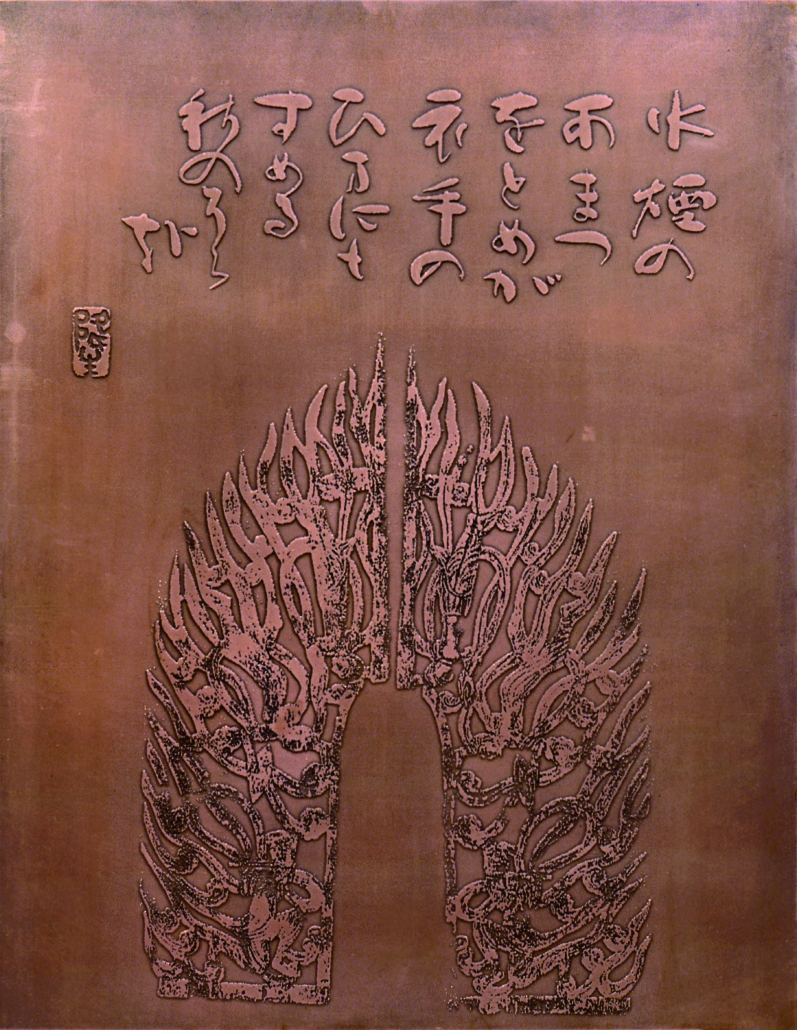 水煙の
あまつ
をとめが
衣手の
ひまにも
すめる
秋のそら
かな